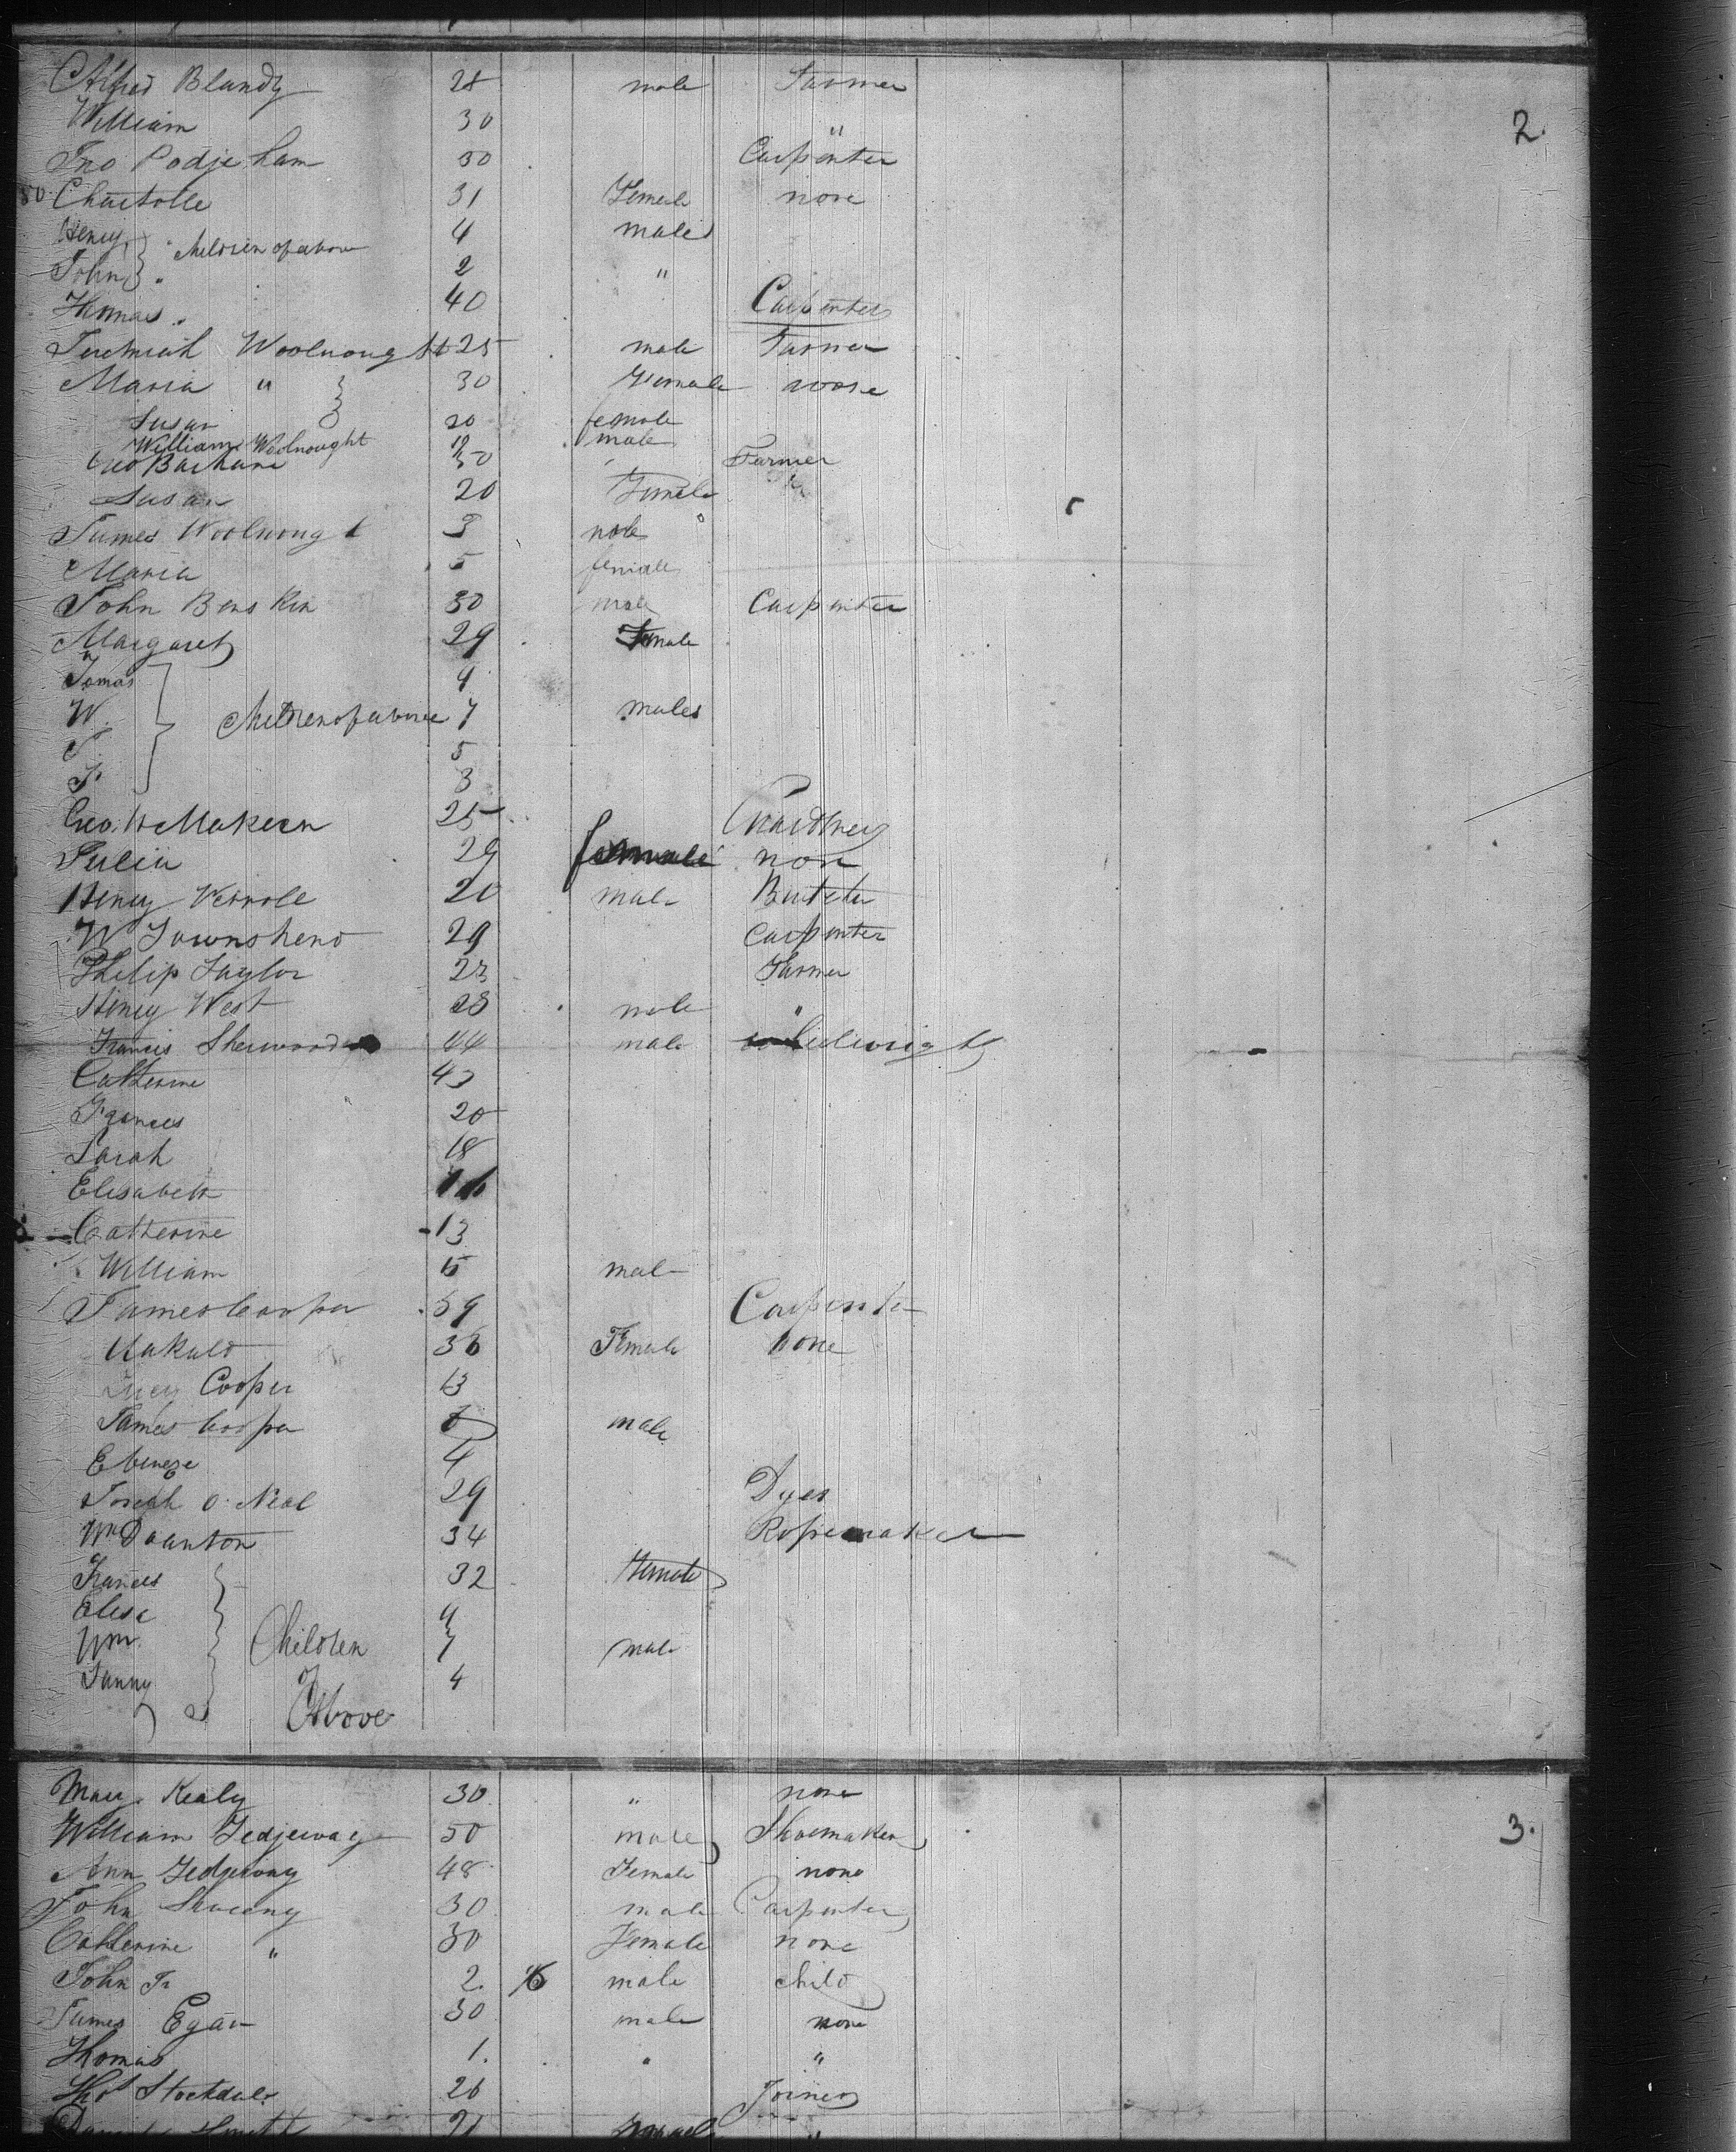 Alfred Blandy 28 male Farmer
2.
William 30 "
Jno Podje ham 30 Carpenter
80 Charlotte 31 Female none
Henry 4 males
Children of above
John 2 "
Thomas 40 Carpenter
Jeremiah Woolnought 25 male Farmer
Maria " 30 Female none
Susan 20 female
William Woolnought male
Geo 30 Farmer
Susan 20 Female
James Woolnought 3 male
Maria 5 female
John Bens Kin 30 male Carpenter
Margaret 29 Female
9
W. Children of above 7 males
5
3
Geo. 25
Julia 29 female none
Henry 20 male
W Townshend 29 Carpenter
Philip Taylor 23 Farmer
Henry West 28 male "
Francis Sherwood 44 male
Catherine 43
Frances 20
Sarah 18
Elisabeth 16
Catherine 13
William 15 male
James Cooper 39 Carpenter
36 Female none
Lucy Cooper 13
James Cooper male
Ebeneze 4
Joseph O. Neal 29 Dyer
Wm Daunton 34 Ropemaker
Frances 32 female
Elisa 9
Wm. Children 7 male
Fanny 4
of
Above
Mary Kealy 30 " none
William Gedjeway 50 male Shoemaker
3.
Ann Gedjeway 48 Female none
John 30 male Carpenter
Catherine " 30 Female none
John Jr 2 male child
James Egan 30 male none
Thomas 1. " "
Thos Stockdale 26 Joiner